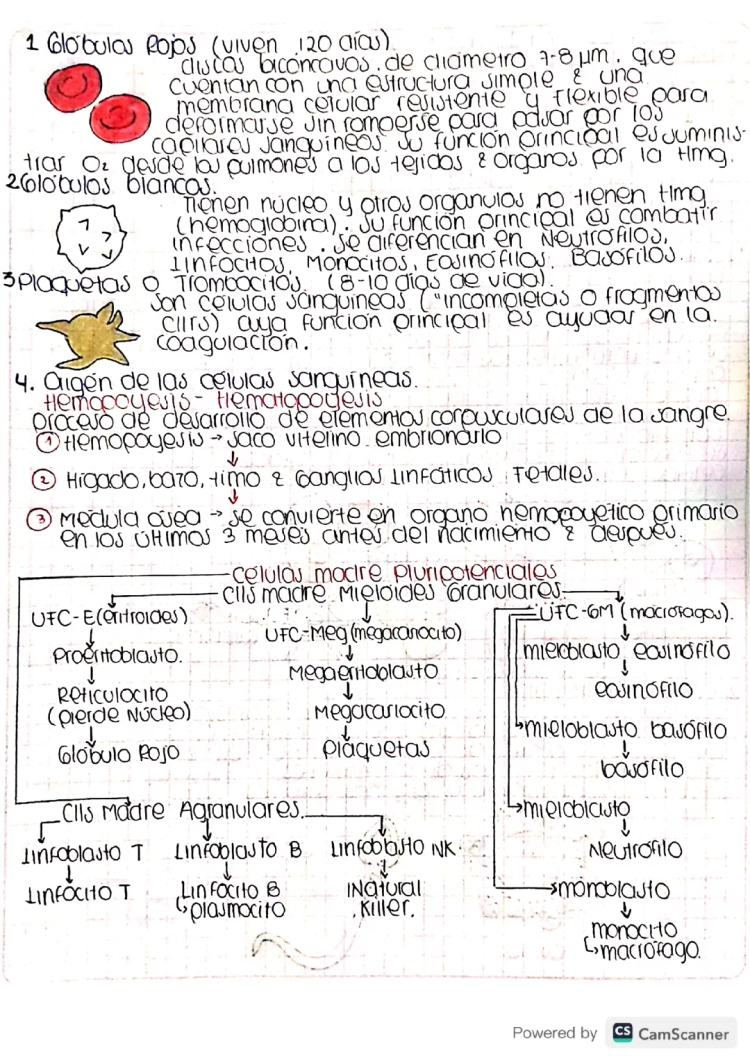 1 Glóbulos Rojos (viven 120 días)
discos bicóncavos de diámetro 7-8 µm. que
cuentan con una estructura simple & una
membrana celular resistente y flexible para
deformarse sin romperse para pasar por los
capilares sanguíneos. Su función principal es suminis-
trar O₂ desde los pulmones a los tejidos & organos por la Hmg.
2 Glóbulos blancos.
Tienen núcleo y otros organulos no tienen Hmg
(hemoglobina). Su función principal es combatir
infecciones. Se diferencian en Neutrófilos,
Linfocitos, Monocitos, Eosinófilos. Basófilos.
3 Plaquetas o Trombocitos. (8-10 días de vida).
Son células sanguíneas ("incompletas o fragmentos
Clls) cuya función principal es ayudar en la.
coagulación.
4. Origen de las células sanguíneas.
Hemopoyesis - Hematopodesis
proceso de desarrollo de elementos corpusculares de la sangre.
① Hemopoyesis → saco vitelino embrionario
↓
② Hígado, bazo, timo & Ganglios Linfáticos Fetales.
↓
③ Médula ósea → se convierte en organo hemopoyetico primario
en los últimos 3 meses antes del nacimiento & después.
células madre Pluripotenciales
Clls madre Mieloides Granulares
UFC-E(eritroides)
Proeritoblasto.
Reticulocito
(pierde Núcleo)
Glóbulo Rojo
UFC-Meg (megacariocito)
Megaeritoblasto
Megacariocito
Plaquetas
UFC-GM (macrofagos).
mieloblasto eosinófilo
eosinófilo
mieloblasto basófilo
basófilo
mieloblasto
Neutrófilo
monoblasto
monocito
↳macrófago.
Clls Madre Agranulares
Linfoblasto T
Linfocito T
Linfoblasto B
Linfocito B
↳plasmocito
Linfoblasto NK.
Natural
Killer.
Powered by CS CamScanner